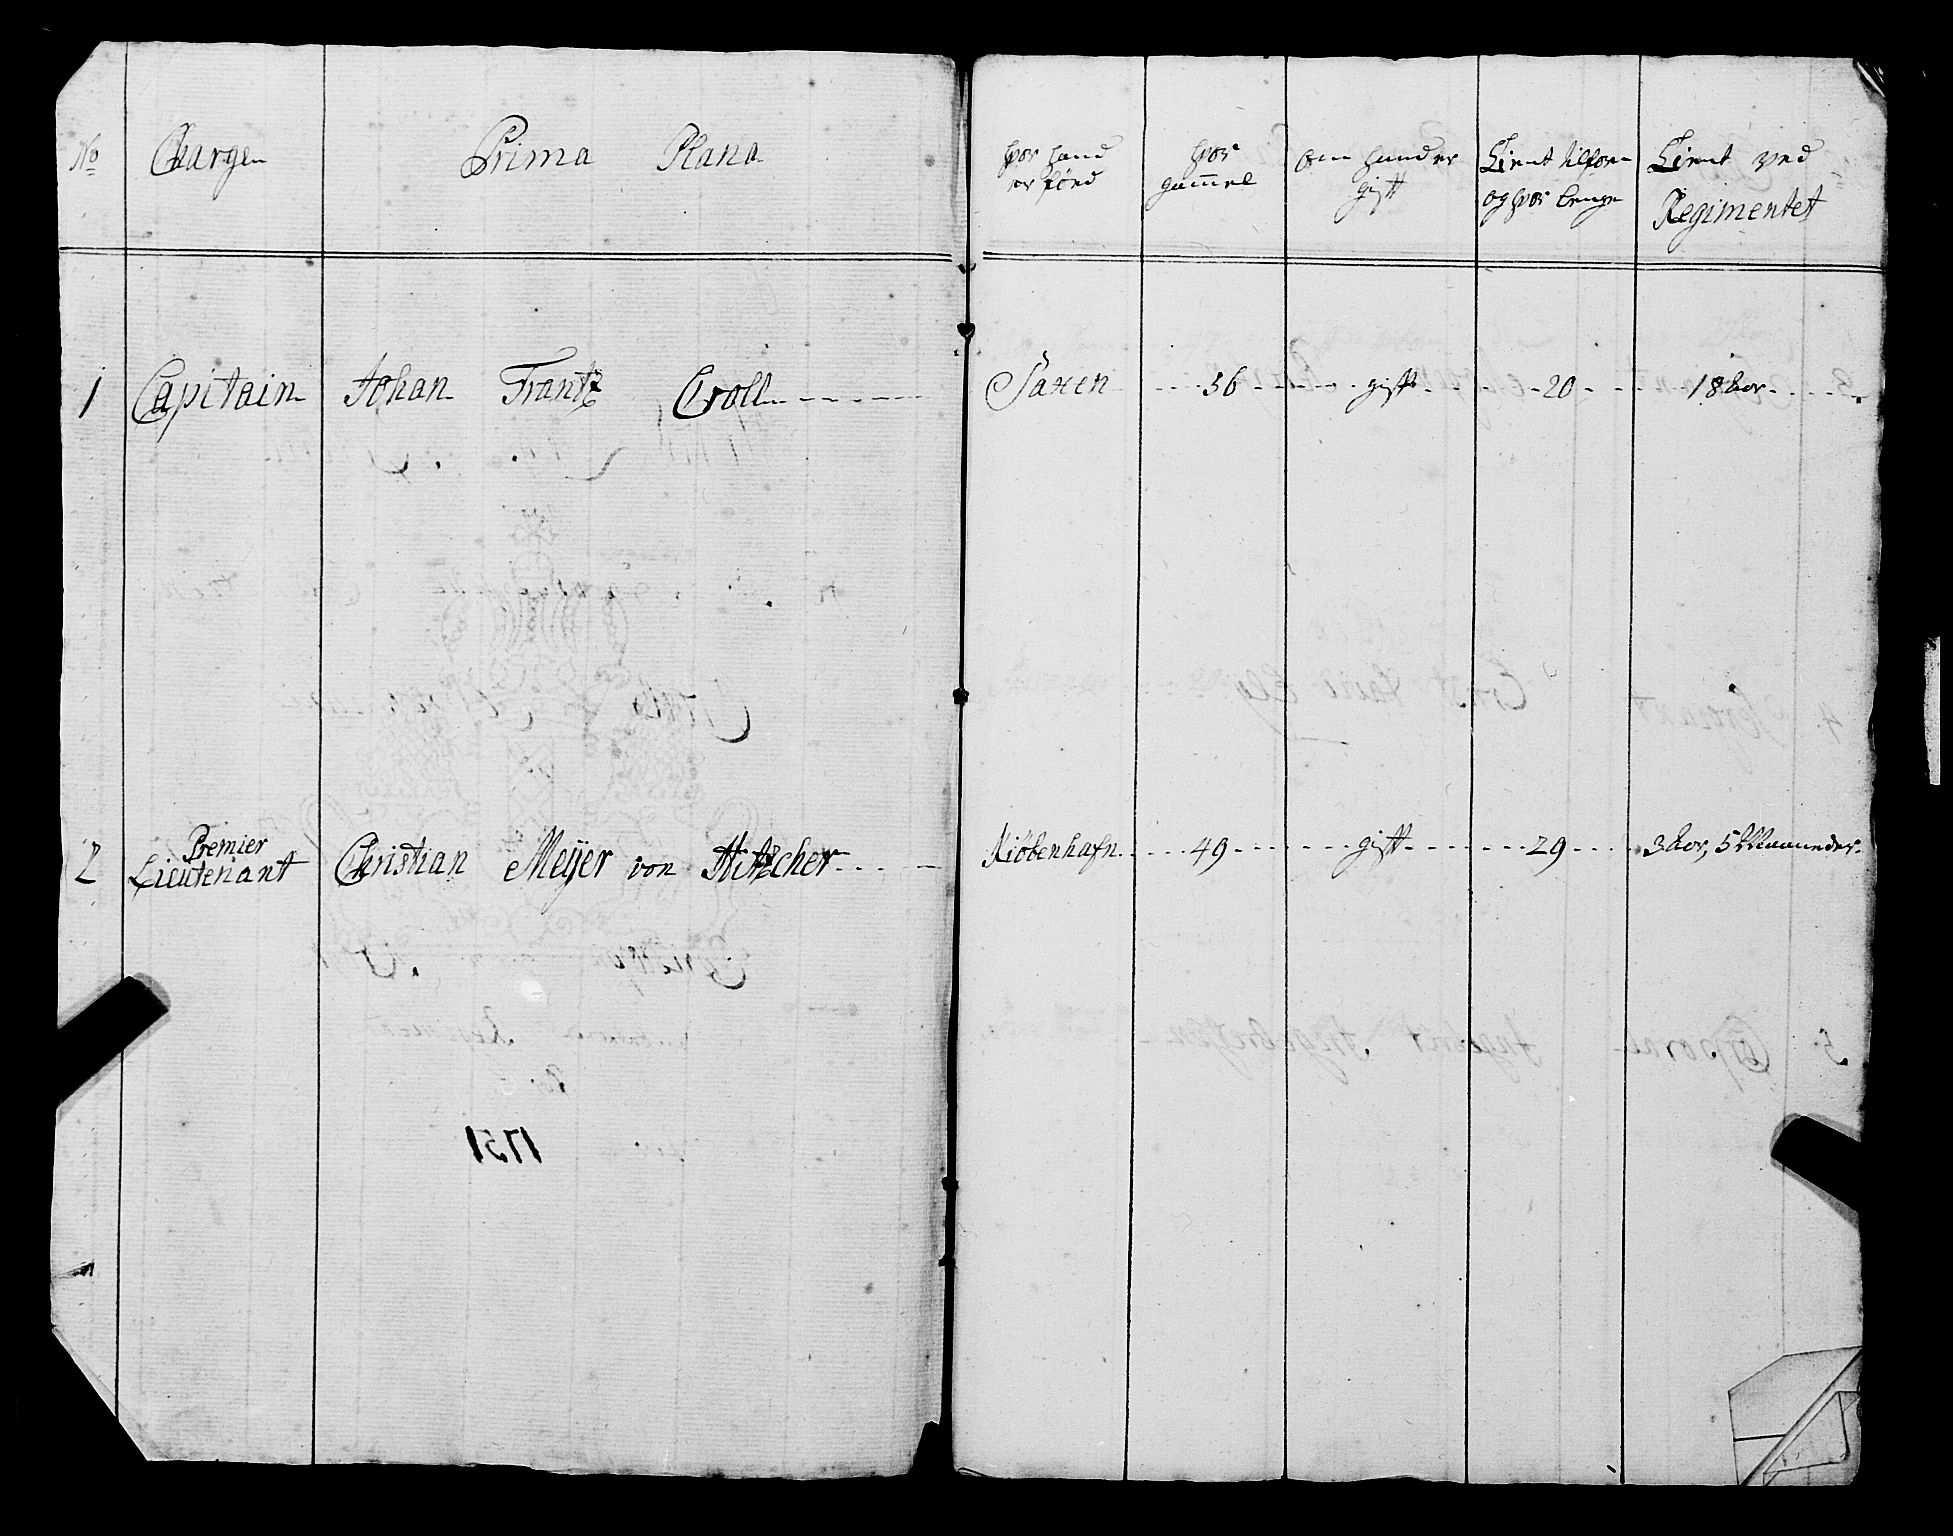 No Chargen Prima Plana hvor hand er fØed hvor gam̄el om hand er gift Tient tilforn og hvor lenge Tient ved Regimentet
1 Capitain Johan Frantz Croll Saxen 56 gift 20 18 aar
2 Premier Lieutenant Christian Meijer von Kiöbenhafn 49 gift 29 3 aar, 5 Maaneder
1751